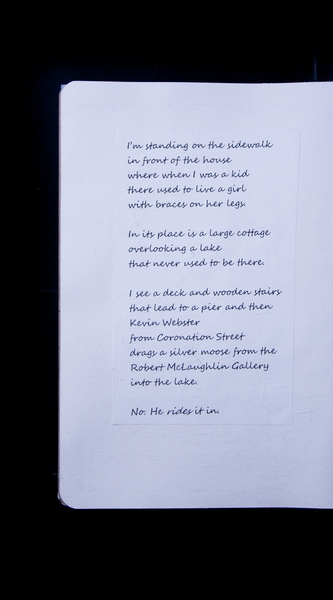 I'm standing on the sidewalk
in front of the house
where when I was a kid
there used to live a girl
with braces on her legs.

In its place is a large cottage
overlooking a lake
that never used to be there.

I see a deck and wooden stairs
that lead to a pier and then
Kevin Webster
from Coronation Street
drags a silver moose from the
Robert McLaughlin Gallery
into the lake.

No. He rides it in.